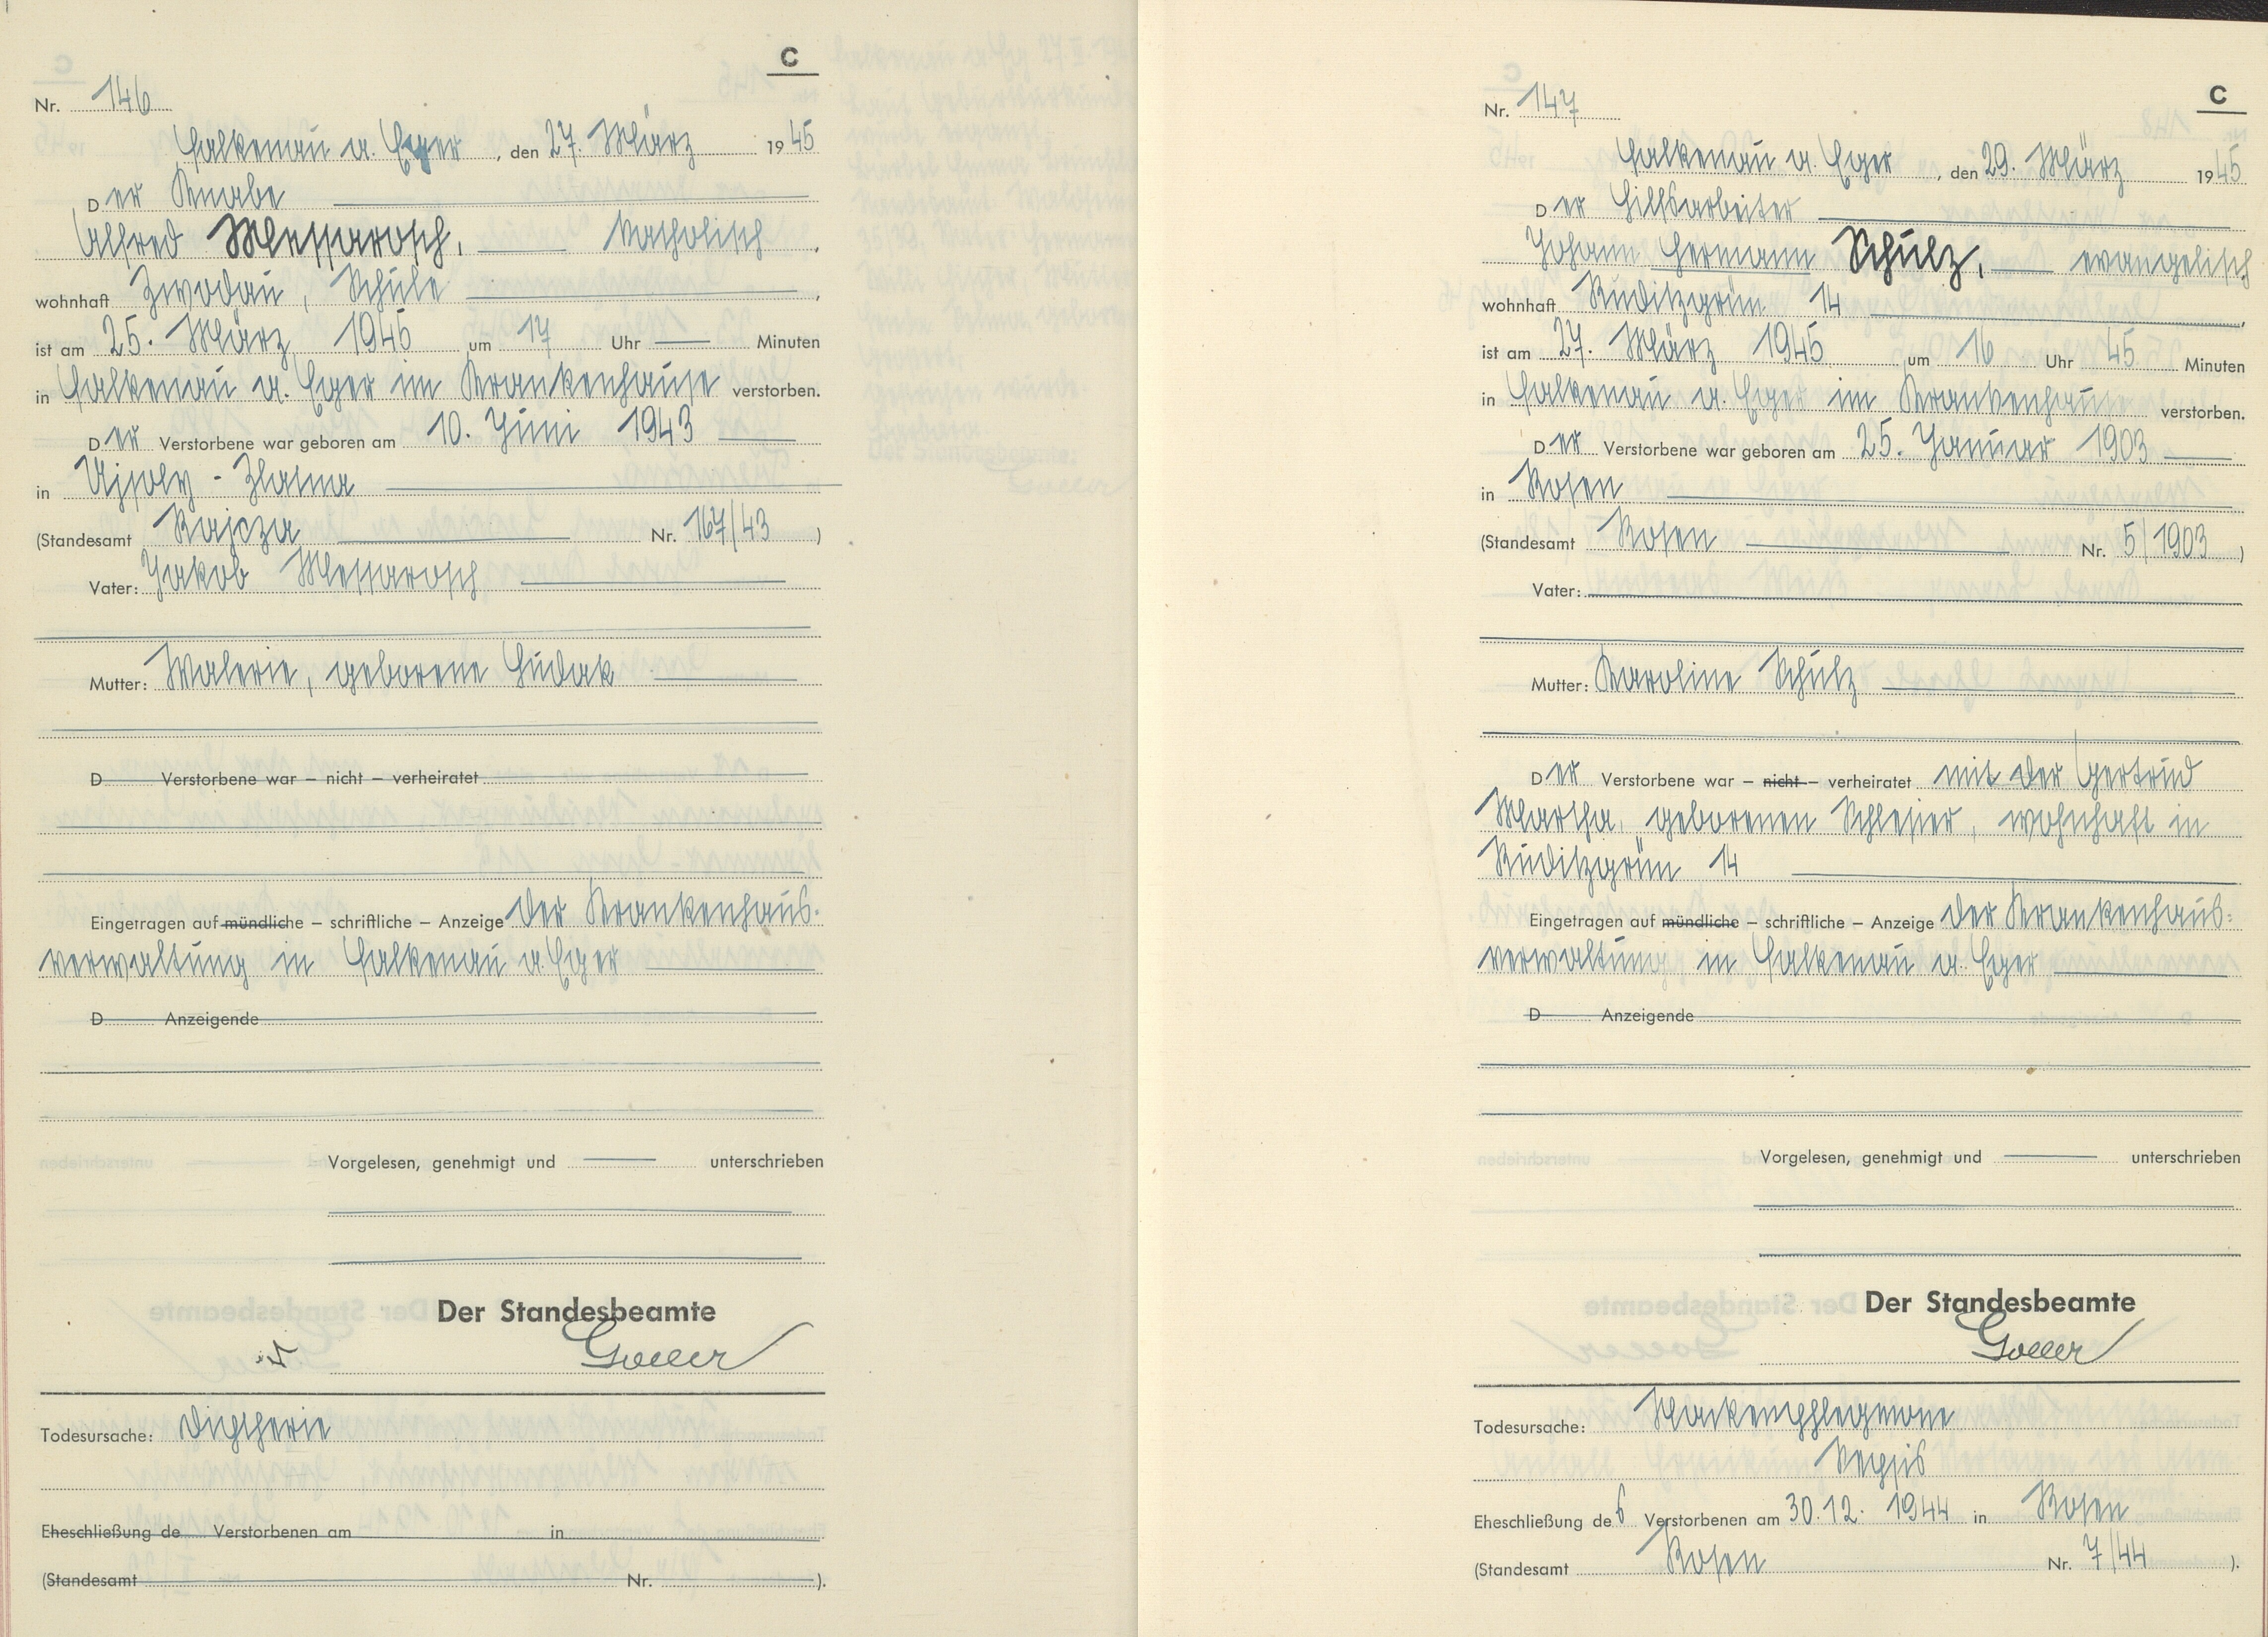 C
Nr. 146
Falkenau a. Eger, den 27. März 1945
Der Knabe
Alfred Messarosch, katholisch,
wohnhaft Zwodau, Schule,
ist am 25. März 1945 um 17 Uhr — Minuten
in Falkenau a. Eger im Krankenhause verstorben.
Der Verstorbene war geboren am 10. Juni 1943
in Ujsoly - Zlatna
(Standesamt Rajcza Nr. 167/43)
Vater: Jakob Messarosch
Mutter: Walerie, geborene Hudak
D Verstorbene war – nicht – verheiratet
Eingetragen auf mündliche – schriftliche – Anzeige der Krankenhaus-
verwaltung in Falkenau a. Eger
D Anzeigende
Vorgelesen, genehmigt und — unterschrieben
Der Standesbeamte
Goller
Todesursache: Diphtherie
Eheschließung de Verstorbenen am in
(Standesamt Nr. ).
C
Nr. 147
Falkenau a. Eger, den 29. März 1945
Der Hilfsarbeiter
Johann Hermann Schulz, evangelisch
wohnhaft Ruditzgrün 14,
ist am 27. März 1945 um 16 Uhr 45 Minuten
in Falkenau a. Eger im Krankenhause verstorben.
Der Verstorbene war geboren am 25. Januar 1903
in Rosen
(Standesamt Rosen Nr. 5/1903)
Vater:
Mutter: Karoline Schulz
Der Verstorbene war – nicht – verheiratet mit der Gertrud
Martha, geborenen Schlesier, wohnhaft in
Ruditzgrün 14
Eingetragen auf mündliche – schriftliche – Anzeige der Krankenhaus-
verwaltung in Falkenau a. Eger
D Anzeigende
Vorgelesen, genehmigt und — unterschrieben
Der Standesbeamte
Goller
Todesursache: Nackenphlegmone
Sepsis
Eheschließung des Verstorbenen am 30.12. 1944 in Rosen
(Standesamt Rosen Nr. 7/44 ).